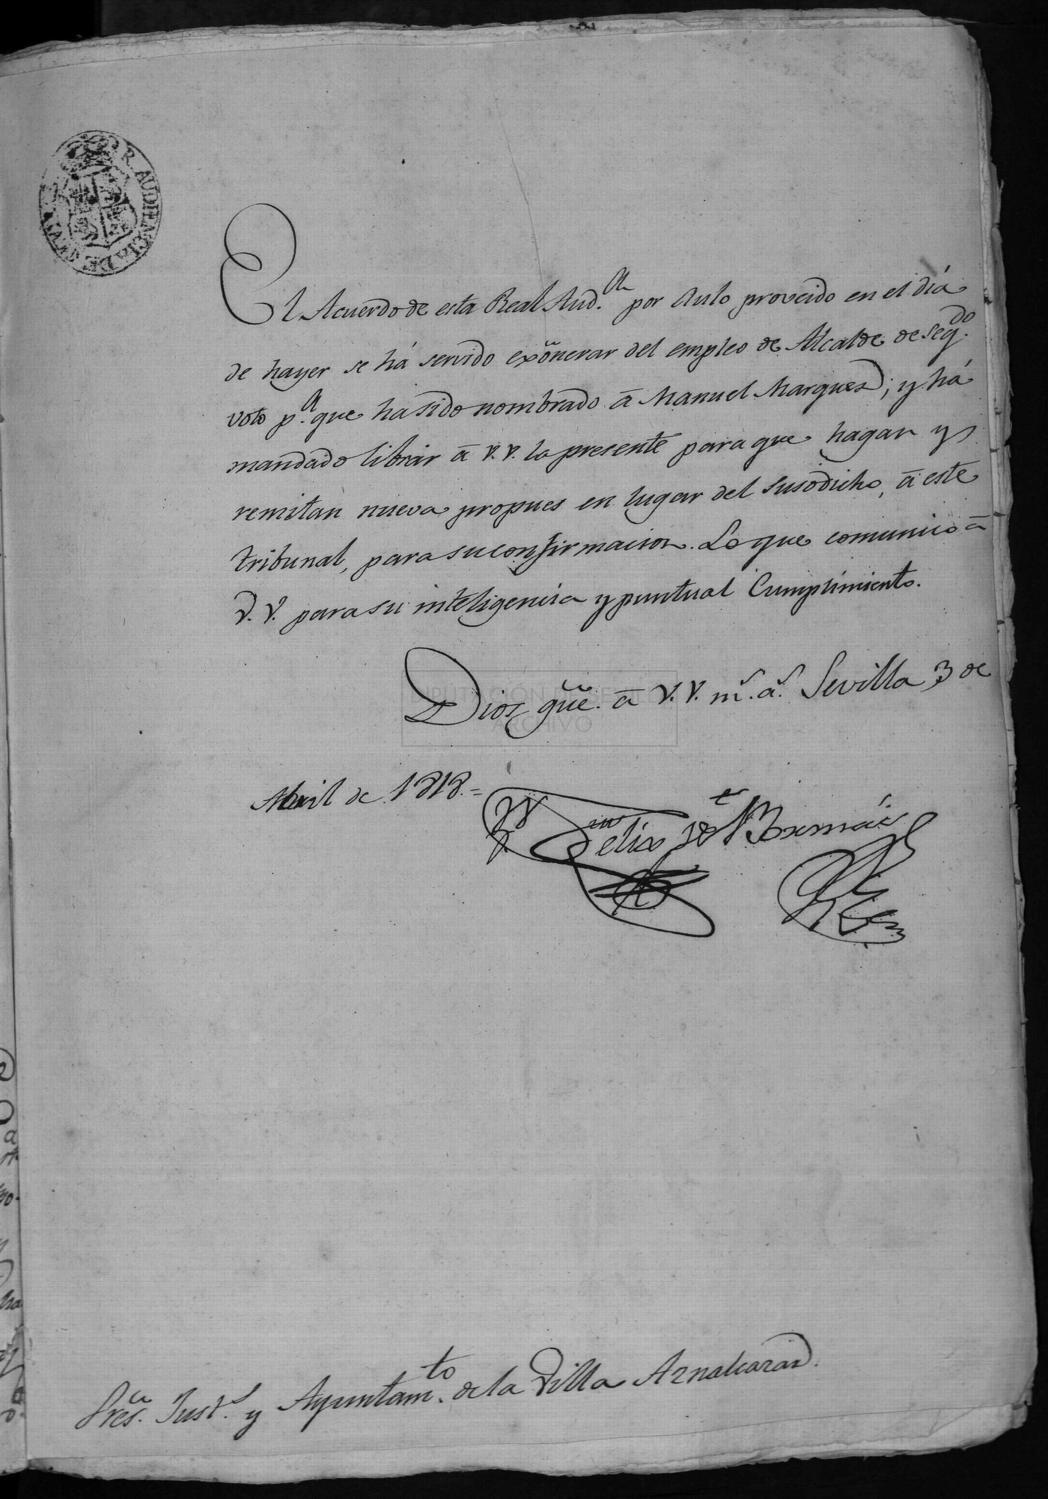 R. AUDIENCIA DE SEVILLA
El Acuerdo de esta Real Aud.ª por Auto proveido en el día
de hayer se há servido exônerar del empleo de Alcalde de Seg.do
voto p.ª que ha sido nombrado â Manuel Marques; y há
mandado librar â V.V. la presente para que hagan y
remitan nueva propues en lugar del susodicho, â este
tribunal, para su confirmacion. Lo que comunico â
V.V. para su inteligencia y puntual Cumplimiento.
Dios gûe. â V.V. m.s a.s Sevilla 3 de
Abril de 1818.=
Felix
DIPUTACIÓN DE SEVILLA
ARCHIVO
Sres. Just.ª y Ayuntam.to de la Villa Aznalcazar.